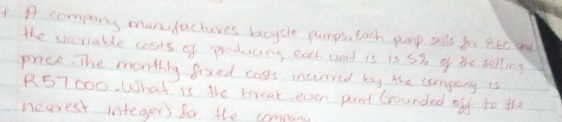 A company manufactures bicycle pumps. Each pump sells for and
the variable costs of producing each unit is is 5% of the selling
price. The monthly fixed costs incurred by the company is
R57 000. What is the break even point (rounded off to the
nearest integer) for the company